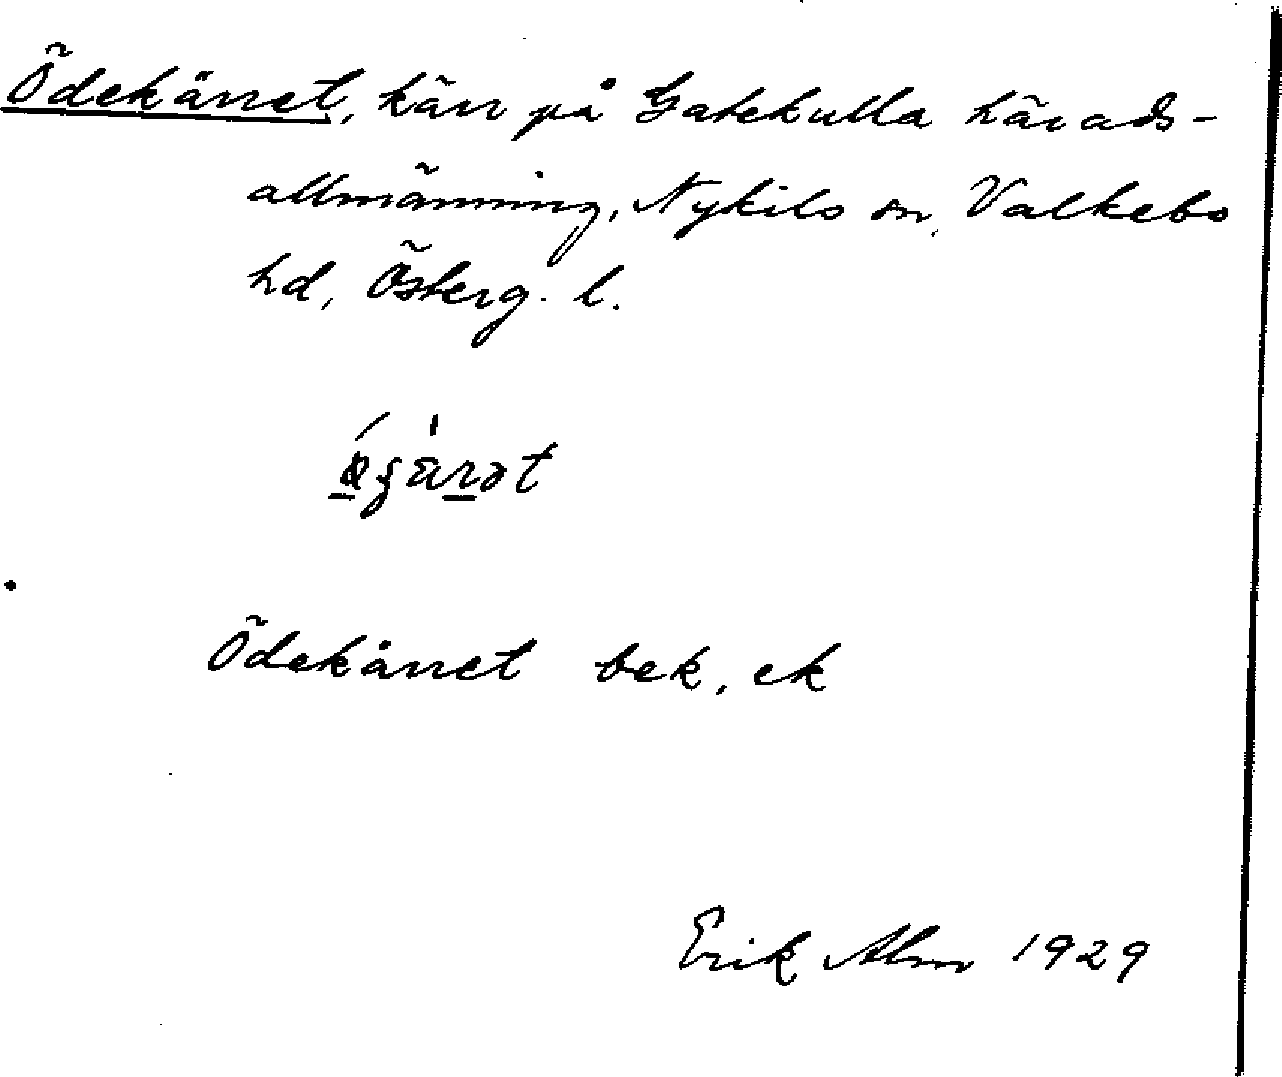 Ödekärret, kärr på Gatekulla härads-
allmänning, Nykils sn, Valkebo
hd, Österg. l.
Ödekärret bek, ek
Erik Alm 1929